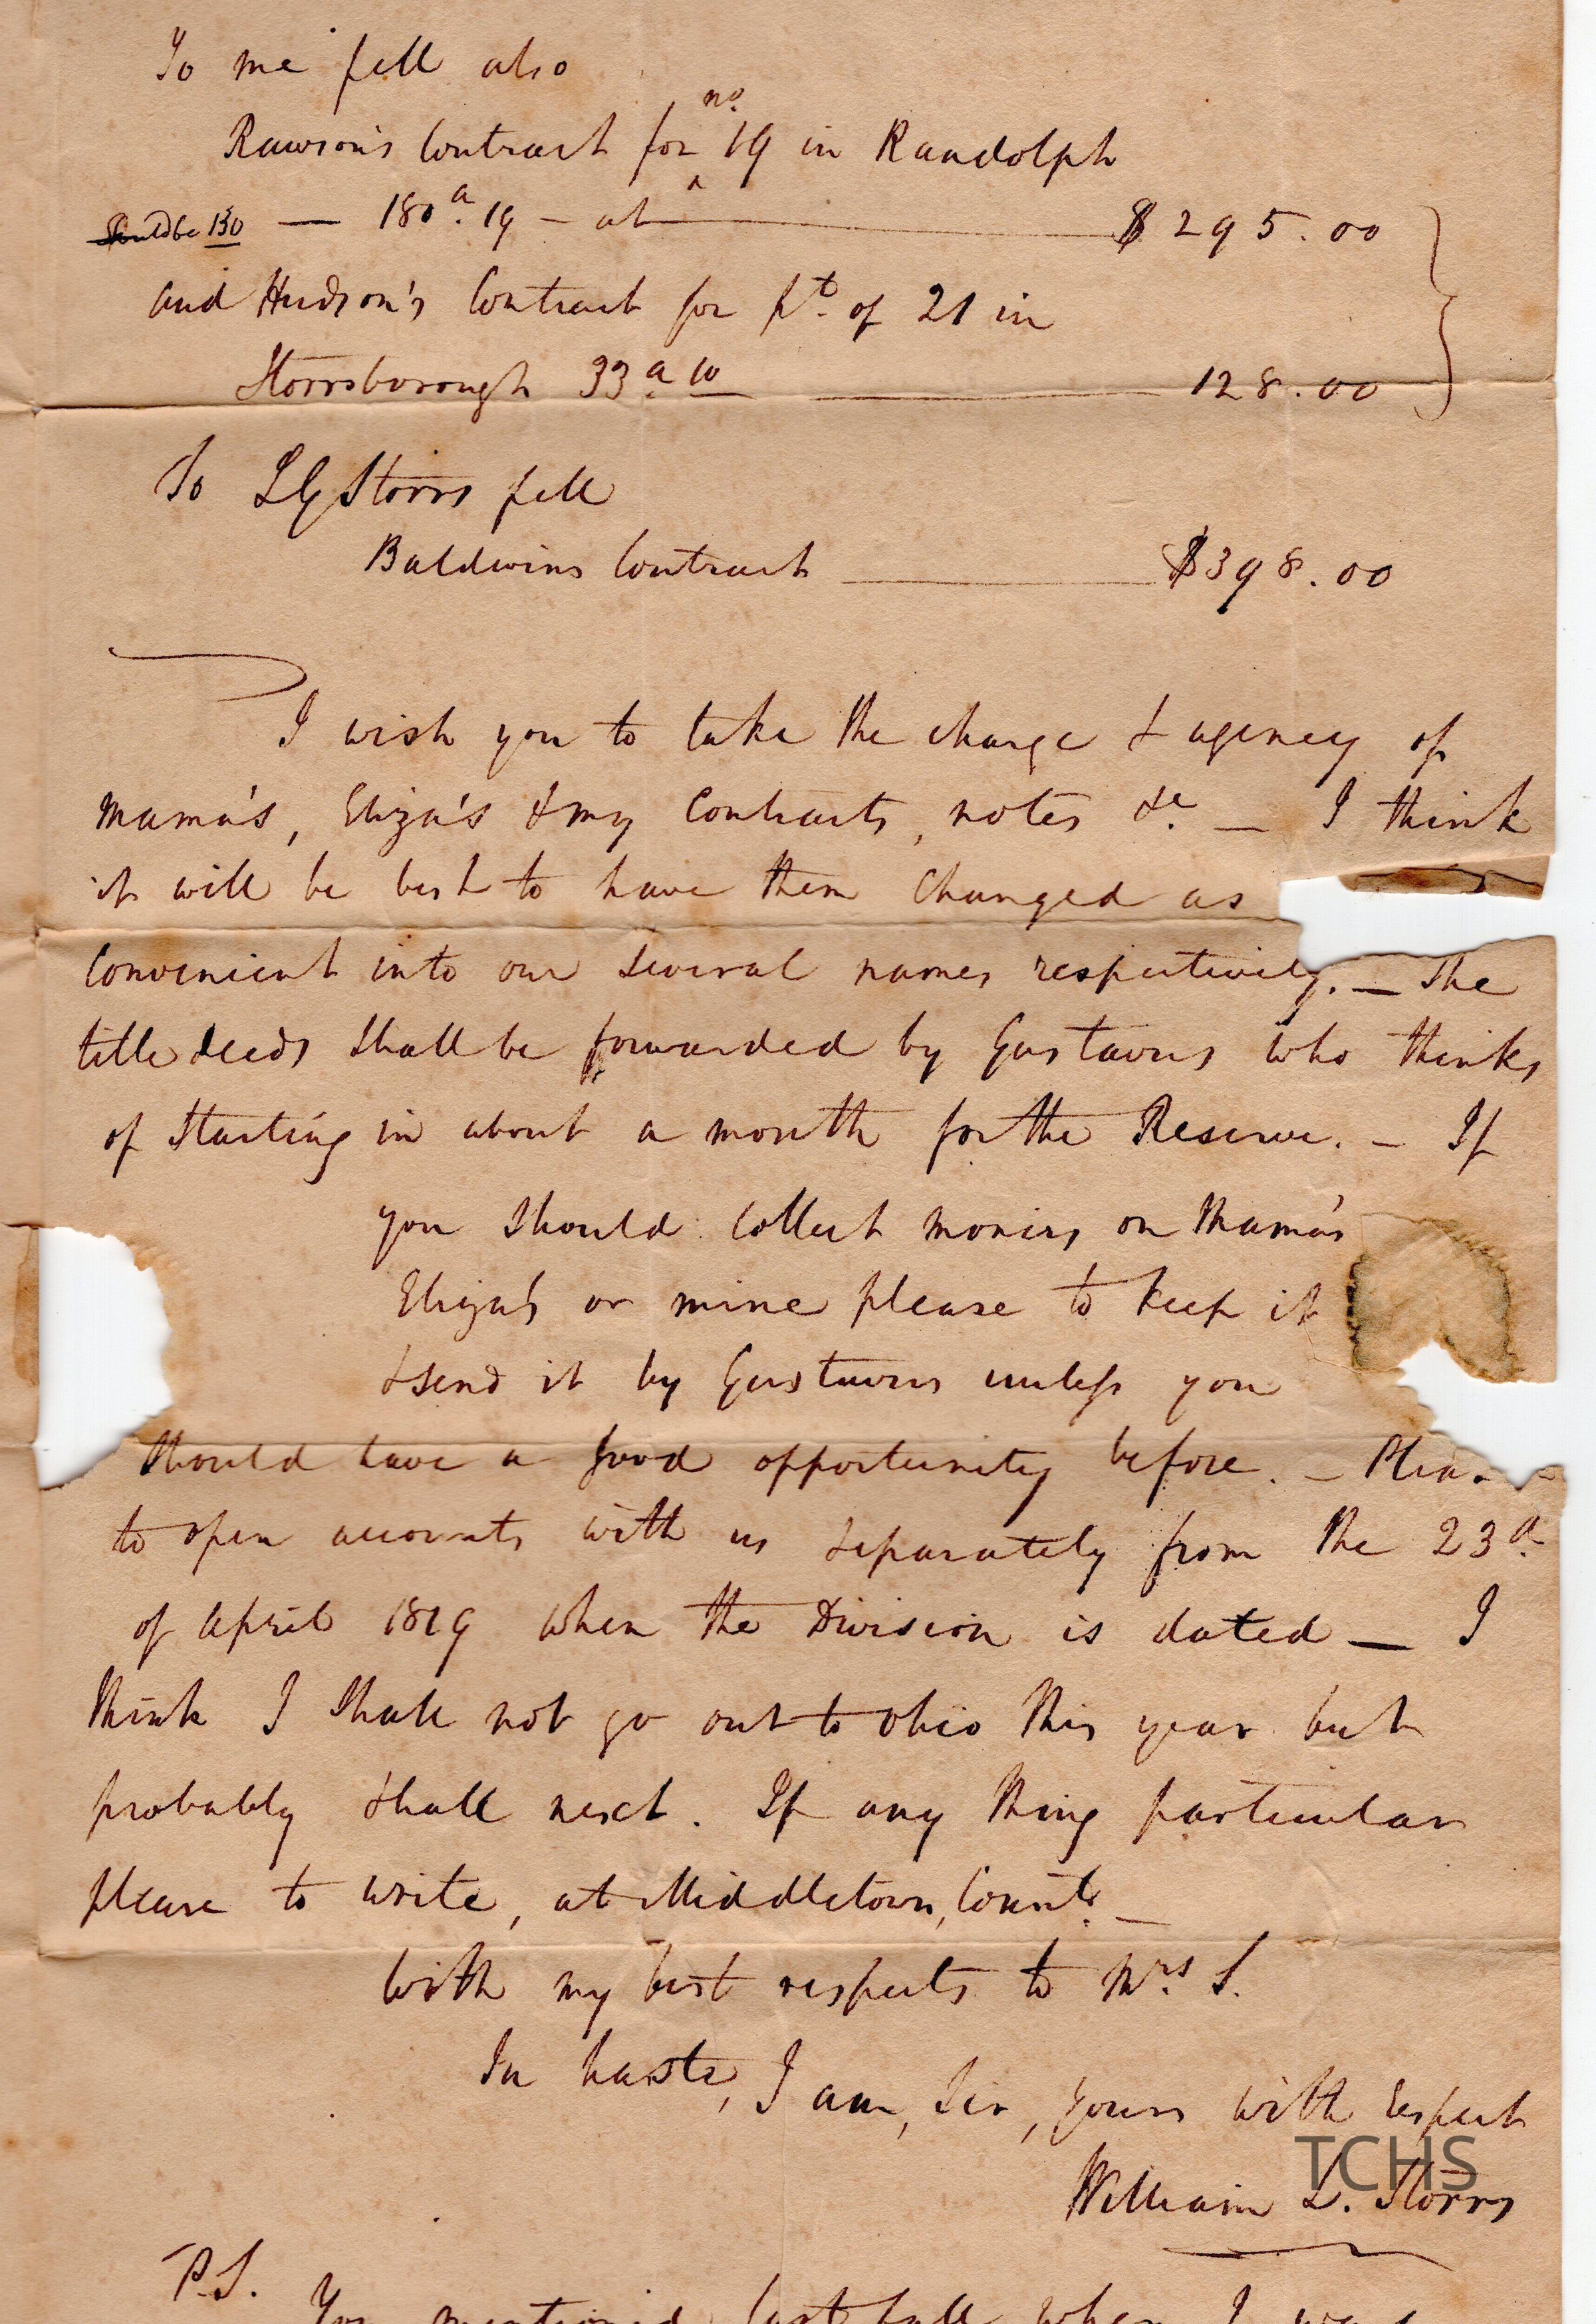 To me fell also
Rawson's Contract for no. 19 in Randolph
Should be 130 — 180 a. 19 — at — $295.00
and Hudson's Contract for pt. of 21 in
Storrsborough 33 a. 10 — 128.00
To L G Storrs fell
Baldwins Contract — $398.00
I wish you to take the charge & agency of
Mama's, Eliza's & my Contracts, notes &c. — I think
it will be best to have them Changed as
Convenient into our several names respectively. — The
title deeds shall be forwarded by Gustavus who thinks
of starting in about a month for the Reserve. — If
you should collect monies on Mama's
Eliza's or mine please to keep it
& send it by Gustavus unless you
should have a good opportunity before. — Please
to open accounts with us separately from the 23d.
of April 1819 when the Division is dated — I
think I shall not go out to Ohio this year but
probably shall next. If any thing particular
please to write, at Middletown, Connt. —
With my best respects to Mrs. S.
In haste, I am, Sir, yours with respect
William L. Storrs
TCHS
P.S.
You mentioned last fall when I was